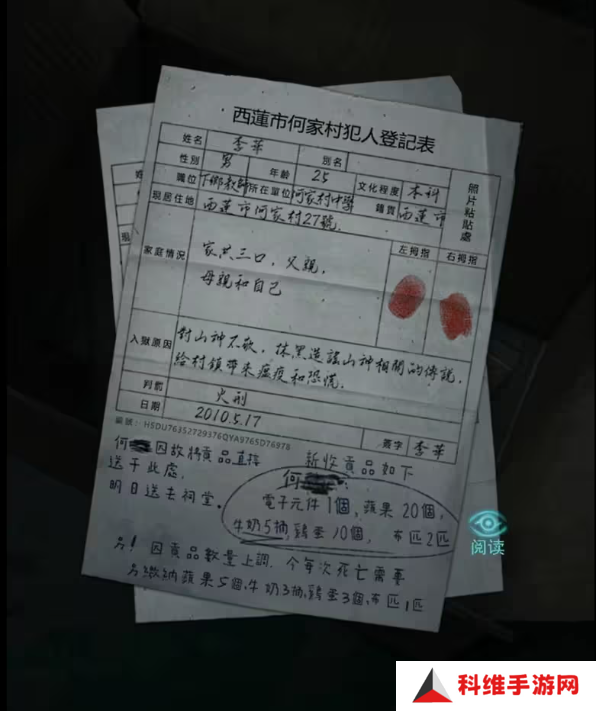 西蓮市何家村犯人登記表
姓名 李華 別名
性別 男 年齡 25 文化程度 本科
職位 下鄉教師 所在單位 何家村中學 籍貫 西蓮市
照片粘貼處
現居住地 西蓮市何家村27號.
家庭情況 家共三口，父親， 左拇指 右拇指
母親和自己
入獄原因 對山神不敬，抹黑造謠山神相關的傳說，
給村鎮帶來瘟疫和恐慌.
判罰 火刑
日期 2010.5.17
簽字 李華
編號：HSDU76352729376QYA9765D76978
何 因故將貢品直接
送于此處.
明日送去祠堂.
新收貢品如下
何
電子元件1個，蘋果20個，
牛奶5抽，雞蛋10個， 布匹2匹
另！因貢品數量上調，今每次死亡需要
另繳納蘋果5個，牛奶3抽，雞蛋3個，布匹1匹
阅读
科维手游网